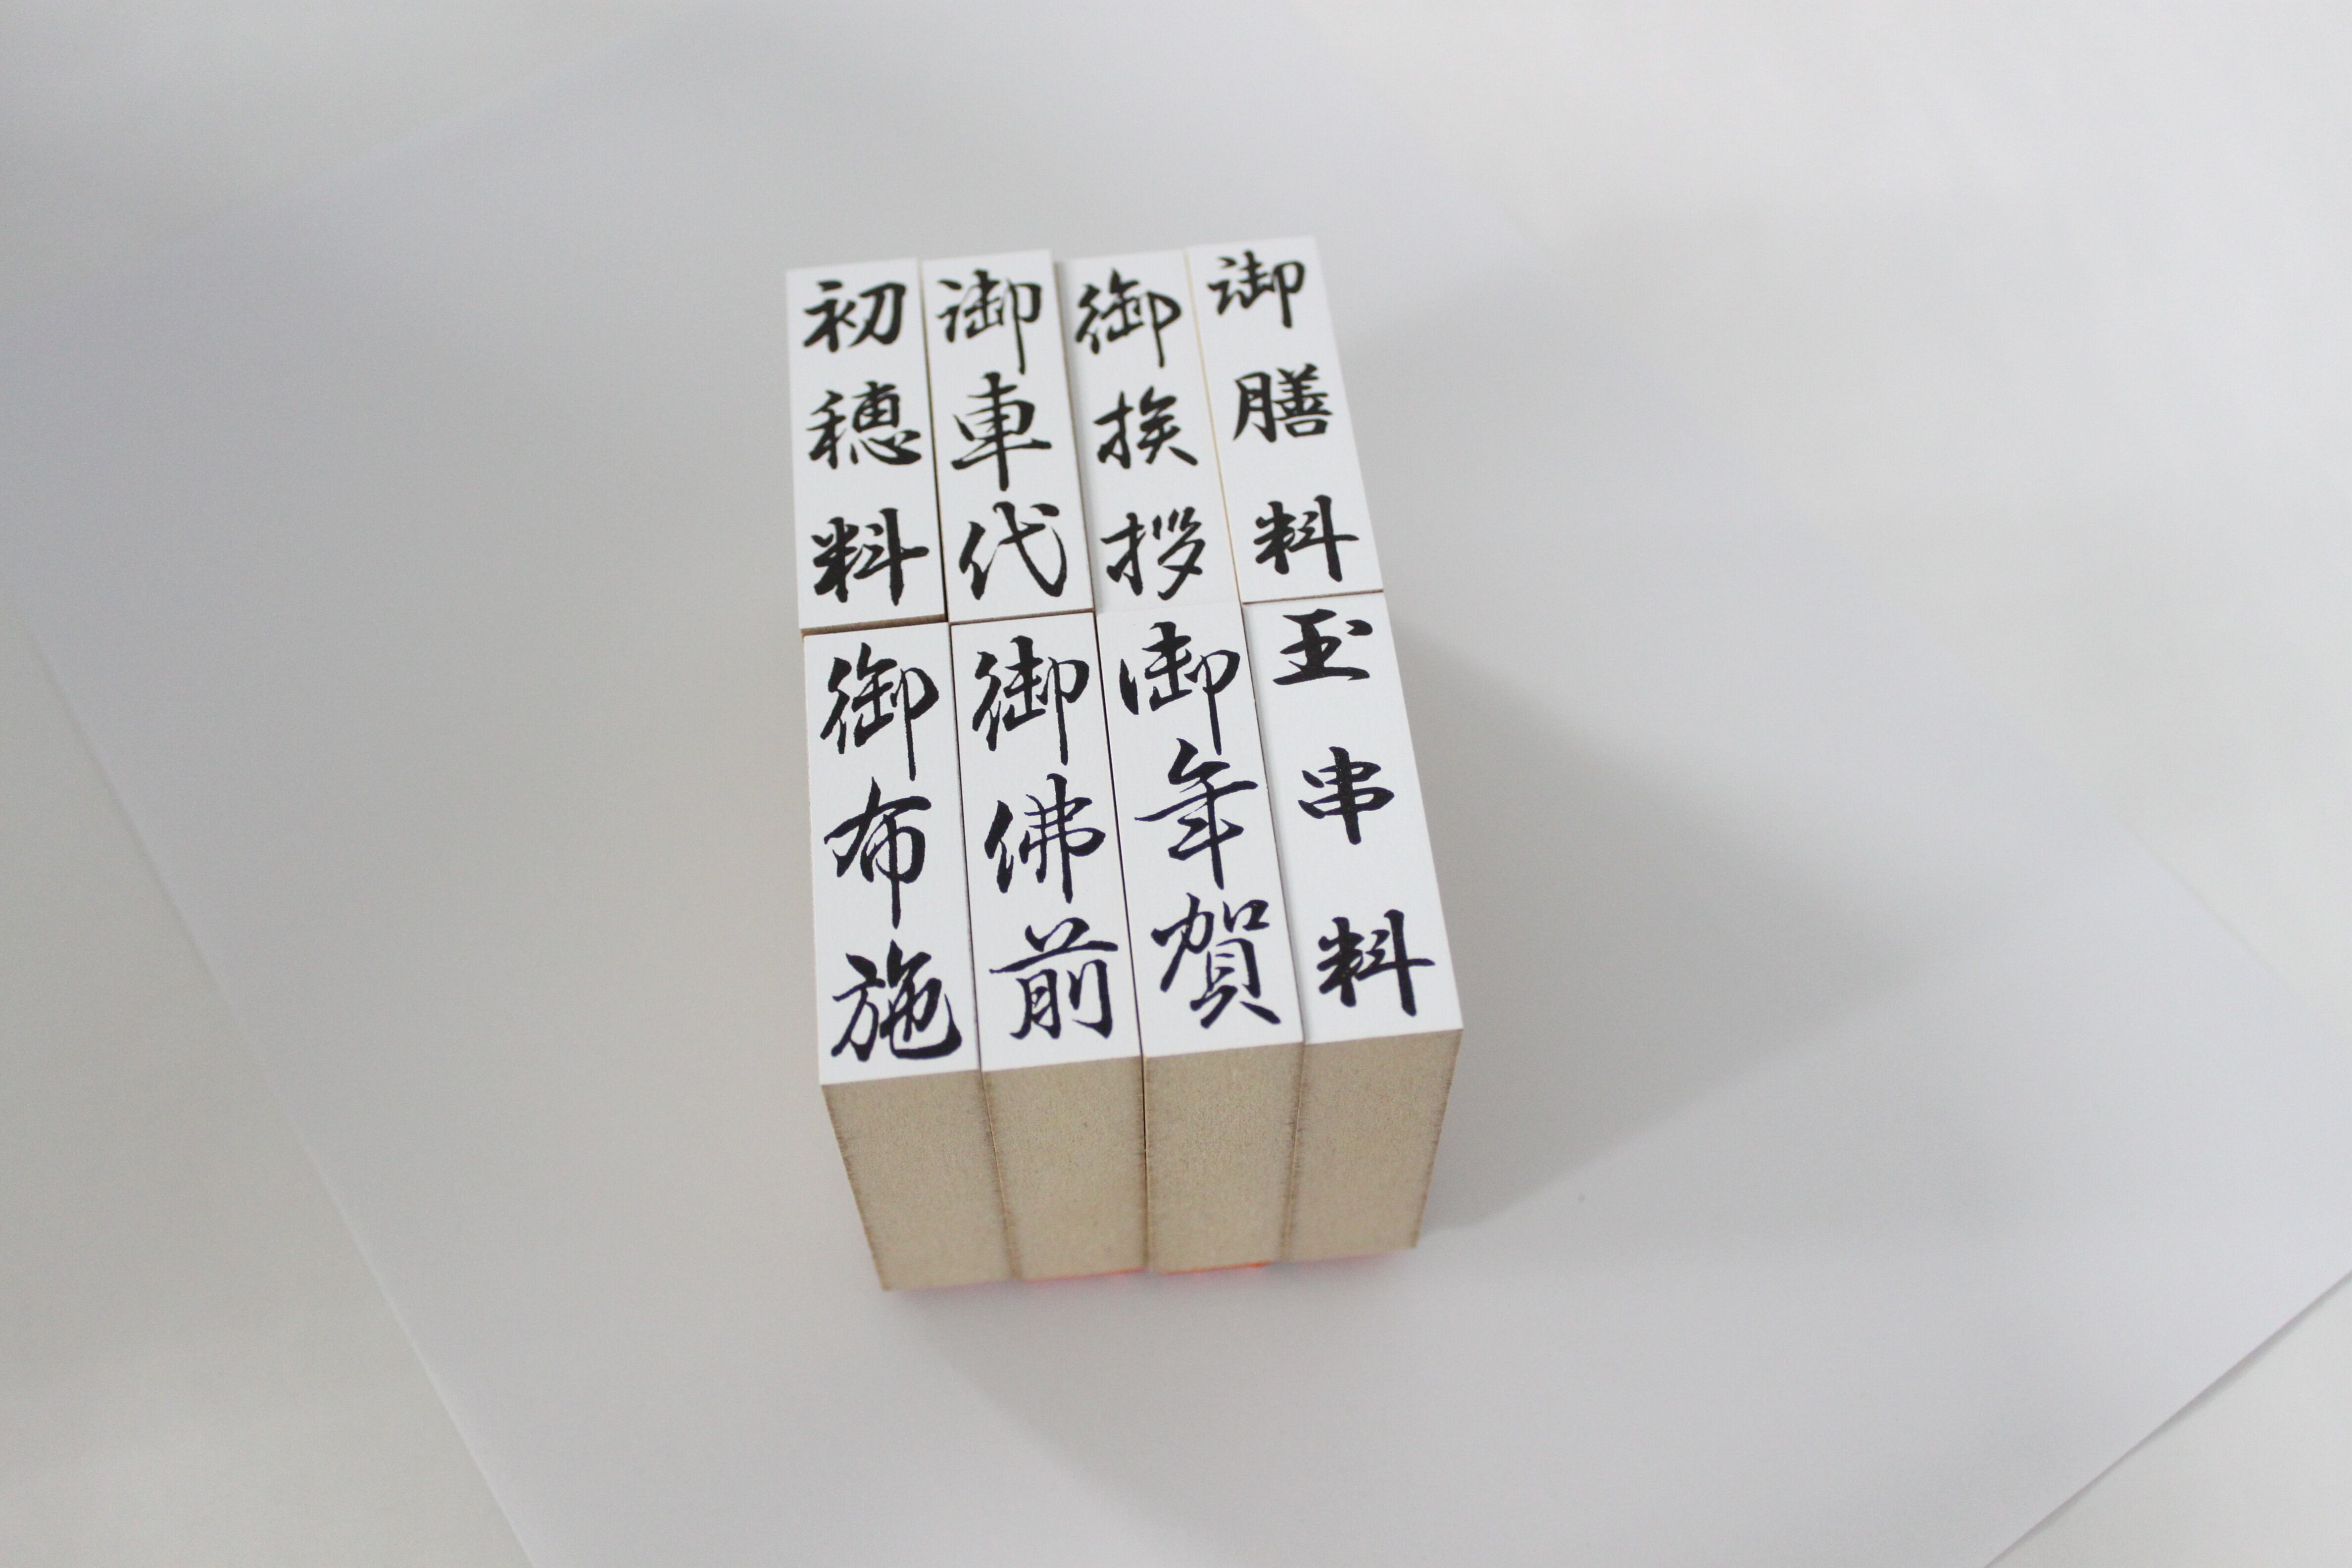 御膳料
御挨拶
御車代
初穂料
玉串料
御年賀
御佛前
御布施